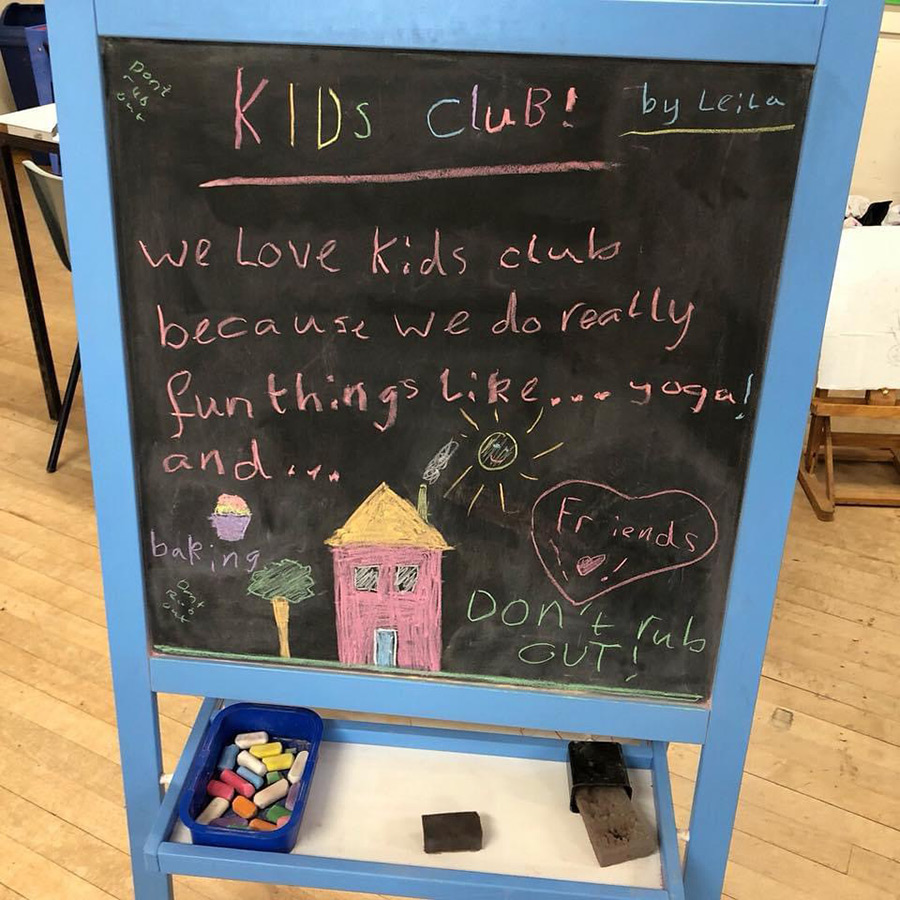 Dont
rub
out
KIDs cluB!
by LeiLa
we Love kids club
because we do really
fun things like.... yoga!
and....
baking
Friends
!
Dont
Rub
out
DON't rub
OUT!